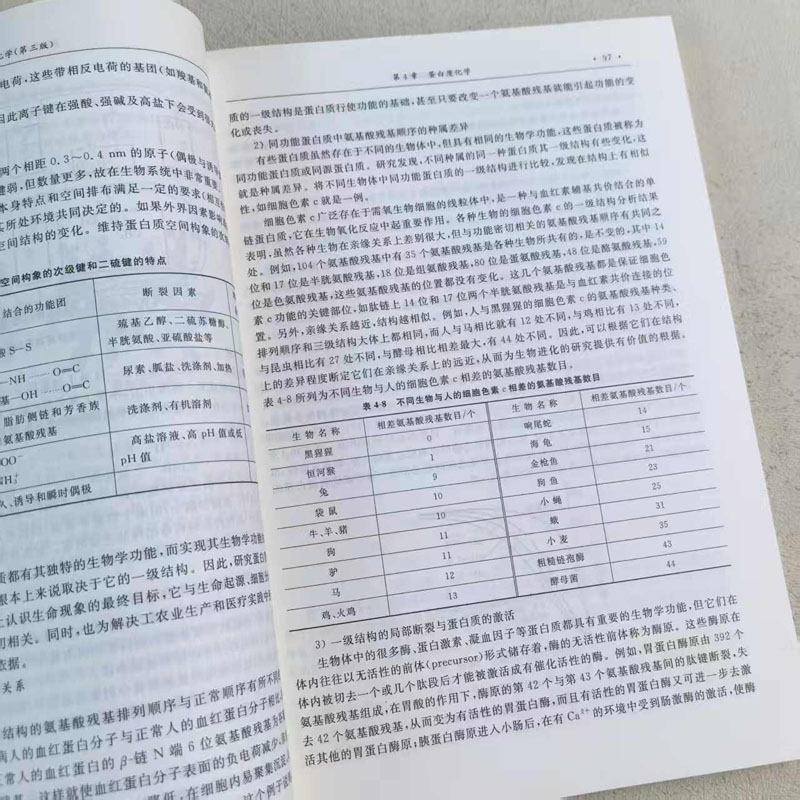 化学(第三版)
电荷,这些带相反电荷的基团(如羧基和
因此离子键在强酸、强碱及高盐下会受到
两个相距 0.3～0.4 nm 的原子(偶极与诱导
键弱,但数量更多,故在生物系统中非常重要
本身特点和空间排布满足一定的要求(相
其所处环境共同决定的。如果外界因素影响
空间结构的变化。维持蛋白质空间构象的次
空间构象的次级键和二硫键的特点
结合的功能团 断裂因素
S—S 巯基乙醇、二硫苏糖醇、
半胱氨酸、亚硫酸盐等
—NH ······ O=C
—OH ······ O=C 尿素、胍盐、洗涤剂、加热
脂肪侧链和芳香族
氨基酸残基 洗涤剂、有机溶剂
COO⁻
NH₃⁺ 高盐溶液、高 pH 值或低
pH 值
、诱导和瞬时偶极
质都有其独特的生物学功能,而实现其生物学功能
根本上来说取决于它的一级结构。因此,研究蛋白
认识生命现象的最终目标,它与生命起源、细胞
切相关。同时,也为解决工农业生产和医疗实践中
依据。
关系
结构的氨基酸残基排列顺序与正常顺序有所不同
病人的血红蛋白分子与正常人的血红蛋白分子相比
正常人的血红蛋白的 β-链 N 端 6 位氨基酸残基为
基。这样就使血红蛋白分子表面的负电荷减少
降低,在细胞内易聚集沉淀
这个例子说
第 4 章 蛋白质化学
· 97 ·
质的一级结构是蛋白质行使功能的基础,甚至只要改变一个氨基酸残基就能引起功能的变
化或丧失。
2) 同功能蛋白质中氨基酸残基顺序的种属差异
有些蛋白质虽然存在于不同的生物体中,但具有相同的生物学功能,这些蛋白质被称为
同功能蛋白质或同源蛋白质。研究发现,不同种属的同一种蛋白质其一级结构有些变化,这
就是种属差异。将不同生物体中同功能蛋白质的一级结构进行比较,发现在结构上有相似
性,如细胞色素 c 就是一例。
细胞色素 c 广泛存在于需氧生物细胞的线粒体中,是一种与血红素辅基共价结合的单
链蛋白质,它在生物氧化反应中起重要作用。各种生物的细胞色素 c 的一级结构分析结果
表明,虽然各种生物在亲缘关系上差别很大,但与功能密切相关的氨基酸残基顺序有共同之
处。例如,104 个氨基酸残基中有 35 个氨基酸残基是各种生物所共有的,是不变的,其中 14
位和 17 位是半胱氨酸残基,18 位是组氨酸残基,80 位是蛋氨酸残基,48 位是酪氨酸残基,59
位是色氨酸残基,这些氨基酸残基的位置都没有变化。这几个氨基酸残基都是保证细胞色
素 c 功能的关键部位,如肽链上 14 位和 17 位两个半胱氨酸残基是与血红素共价连接的位
置。另外,亲缘关系越近,结构越相似。例如,人与黑猩猩的细胞色素 c 的氨基酸残基种类、
排列顺序和三级结构大体上都相同,而人与马相比就有 12 处不同,与鸡相比有 13 处不同,
与昆虫相比有 27 处不同,与酵母相比相差最大,有 44 处不同。因此,可以根据它们在结构
上的差异程度断定它们在亲缘关系上的远近,从而为生物进化的研究提供有价值的根据。
表 4-8 所列为不同生物与人的细胞色素 c 相差的氨基酸残基数目。
表 4-8 不同生物与人的细胞色素 c 相差的氨基酸残基数目
生物名称 相差氨基酸残基数目/个 生物名称 相差氨基酸残基数目/个
黑猩猩 0 响尾蛇 14
恒河猴 1 海龟 15
兔 9 金枪鱼 21
袋鼠 10 狗鱼 23
牛、羊、猪 10 小蝇 25
狗 11 蛾 31
驴 11 小麦 35
马 12 粗糙链孢酶 43
鸡、火鸡 13 酵母菌 44
3) 一级结构的局部断裂与蛋白质的激活
生物体中的很多酶、蛋白激素、凝血因子等蛋白质都具有重要的生物学功能,但它们在
体内往往以无活性的前体(precursor)形式储存着,酶的无活性前体称为酶原。这些酶原在
体内被切去一个或几个肽段后才能被激活成有催化活性的酶。例如,胃蛋白酶原由 392 个
氨基酸残基组成,在胃酸的作用下,酶原的第 42 个与第 43 个氨基酸残基间的肽键断裂,失
去 42 个氨基酸残基,从而变为有活性的胃蛋白酶,而且有活性的胃蛋白酶又可进一步去激
活其他的胃蛋白酶原;胰蛋白酶原进入小肠后,在有 Ca²⁺ 的环境中受到肠激酶的激活,使酶